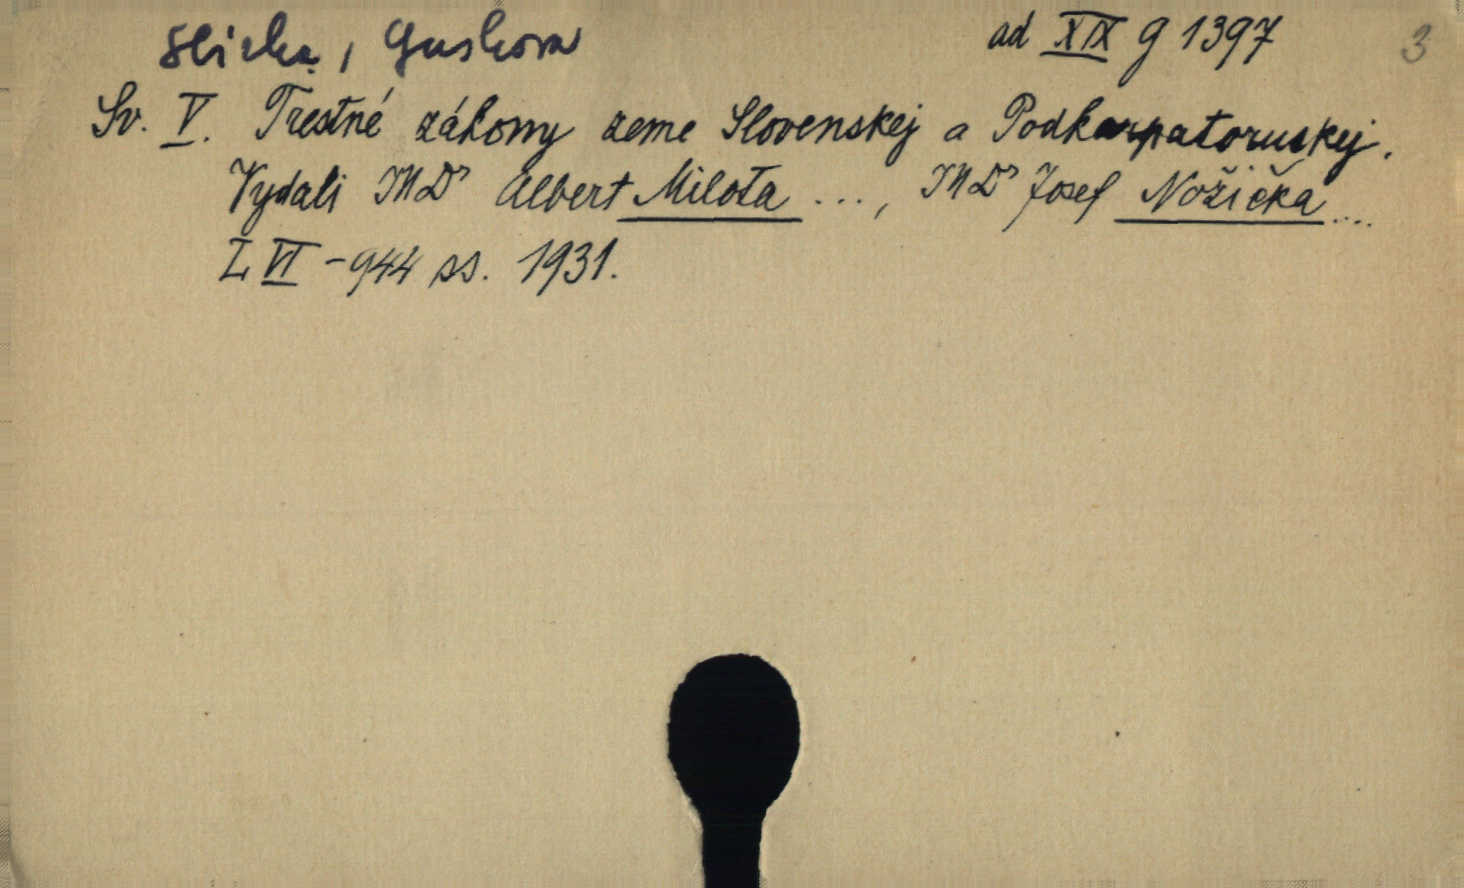 ad XIX g 1397 3
Sv. V. Trestné zákony zeme Slovenskej a Podkarpatoruskej.
Vydali JUDr Albert Milota ..., JUDr Josef Nožička ....
LVI - 944 ss. 1931.